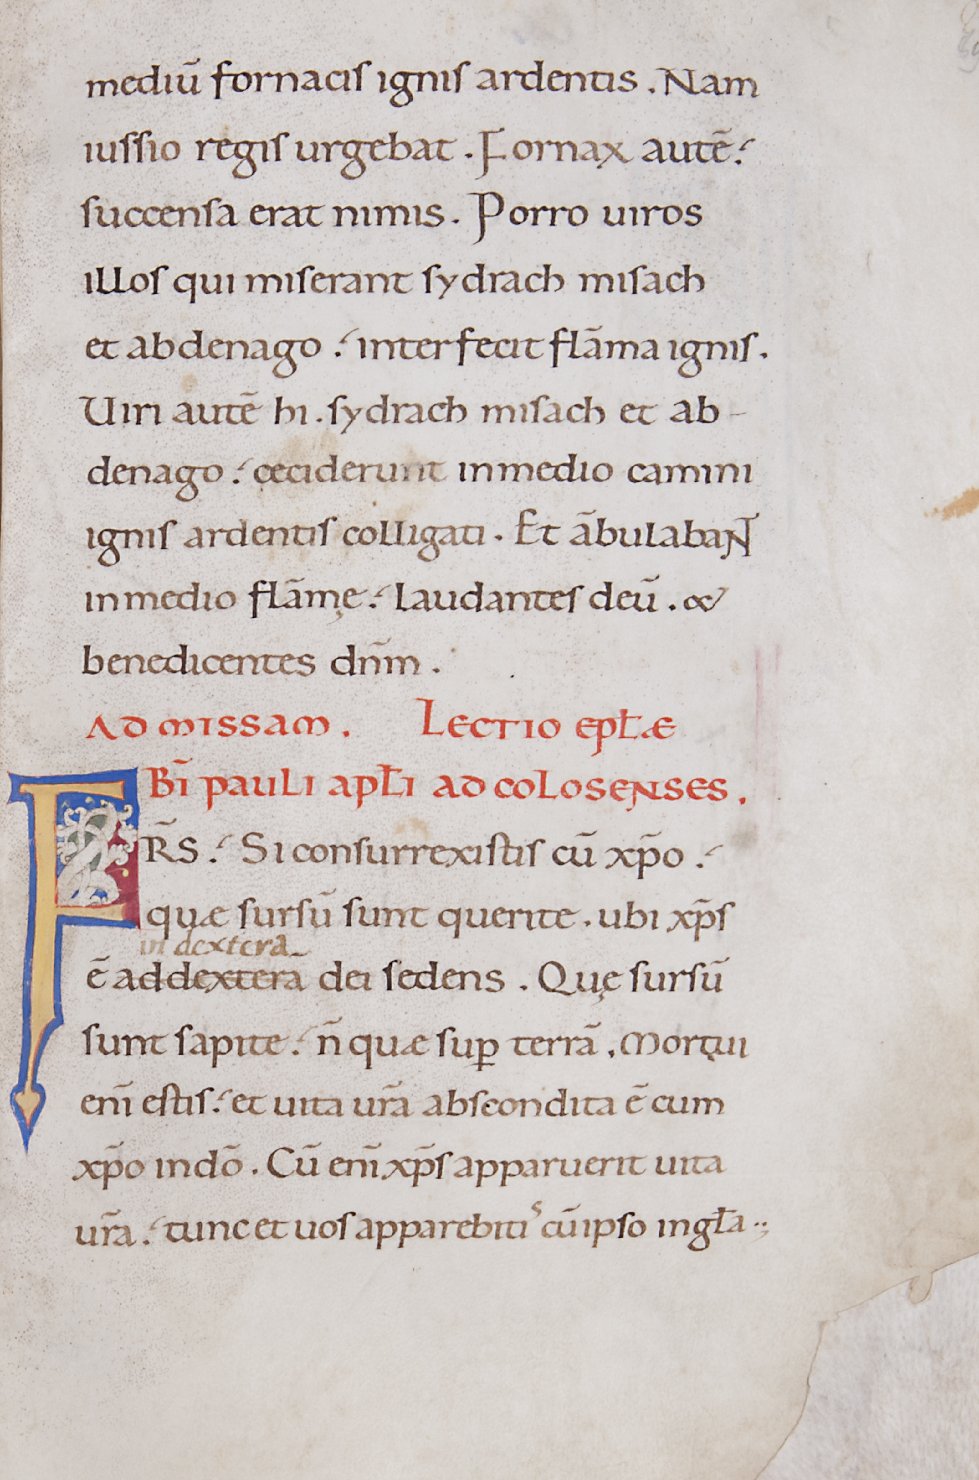 mediū fornacis ignis ardentis . Nam
iussio regis urgebat . Fornax autē :
succensa erat nimis . Porro uiros
illos qui miserant sydrach misach
et abdenago : interfecit flāma ignis .
Uiri autē hi . sydrach misach et ab-
denago : ceciderunt inmedio camini
ignis ardentis colligati . Et ābulabanт
inmedio flāmę : laudantes deū . &
benedicentes dn̄m .
AD MISSAM . LECTIO EPŁÆ
BĪ PAULI APŁI AD COLOSENSES .
FR̄S : Si consurrexistis cū xp̄o :
quæ sursū sunt querite . ubi xp̄s
in dexterā
ē addexterā dei sedens . Quę sursū
sunt sapite : n̄ quæ suꝑ terrā . Mortui
enī estis : et uita ur̄a abscondita ē cum
xp̄o indō . Cū enī xp̄s apparuerit uita
ur̄a : tunc et uos apparebitiˢ cū ipso ingła ··,